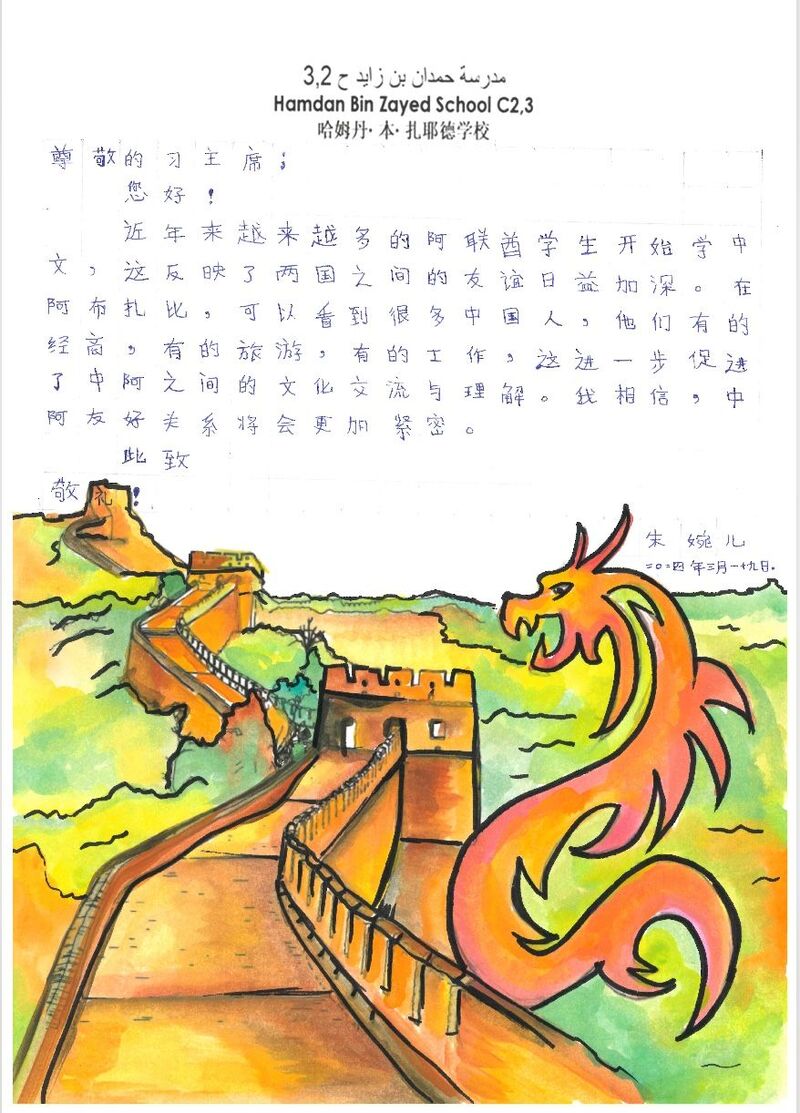 مدرسة حمدان بن زايد ح 3,2
Hamdan Bin Zayed School C2,3
哈姆丹·本·扎耶德学校
尊敬的习主席;
您好!
近年来越来越多的阿联酋学生开始学中
文,这反映了两国之间的友谊日益加深。在
阿布扎比,可以看到很多中国人,他们有的
经商,有的旅游,有的工作,这进一步促进
了中阿之间的文化交流与理解。我相信,中
阿友好关系将会更加紧密。
此致
敬礼!
朱婉儿
二〇二四年三月一十九日.